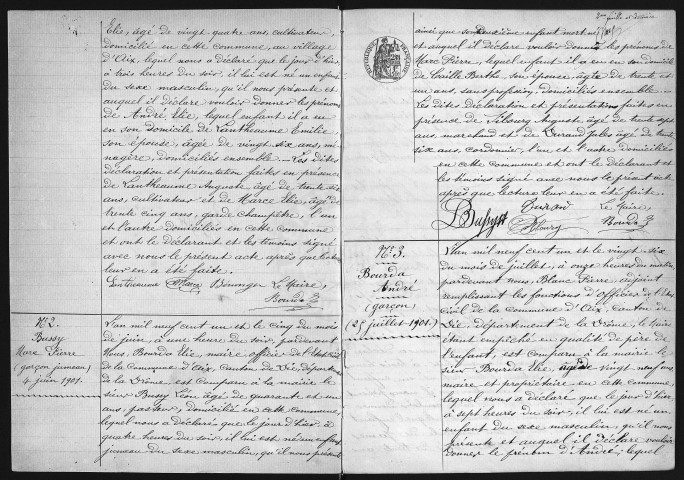 Elie, âgé de vingt quatre ans, cultivateur,
domicilié en cette commune, au village
d'Aix, lequel nous a déclaré que le jour d'hier
à trois heures du soir, il lui est né un enfant
du sexe masculin, qu'il nous présente et
auquel il déclare vouloir donner les prénoms
de André Elie, lequel enfant il a eu
en son domicile de Lantheaume Emilie,
son épouse, âgée de vingt six ans, mé-
nagère, domiciliés ensemble. Les dites
déclaration et présentation faites en présence
de Lantheaume Auguste âgé de trente six
ans, cultivateur et de Marce Elie, âgé de
trente cinq ans, garde champêtre, l'un
et l'autre domiciliés en cette commune
et ont le déclarant et les témoins signé
avec nous le présent acte après que lecture
leur en a été faite.
Lantheaume Marce Le Maire,
Bourda E
N° 2.
Bussy
Marc Pierre
(garçon jumeau)
4 juin 1901.
L'an mil neuf cent un et le cinq du mois
de juin, à une heure du soir, pardevant
Nous, Bourda Elie, maire officier de l'Etat Civil
de la commune d'Aix, canton de Die, département
de la Drôme, est comparu à la mairie le
sieur Bussy Léon âgé de quarante et un
ans, pasteur, domicilié en cette commune,
lequel nous a déclaré que le jour d'hier à
quatre heures du soir, il lui est né un enfant
jumeau du sexe masculin, qu'il nous présente
ainsi que son deuxième enfant mort né
et auquel il déclare vouloir donner les prénoms de
Marc Pierre, lequel enfant il a eu en son domicile
de Berthe, son épouse, âgée de trente et
un ans, sans profession, domiciliés ensemble.
Les dites déclaration et présentation faites en
présence de Auguste âgé de trente sept
ans, maréchal et de Durand Jules âgé de trente
six ans, cordonnier, l'un et l'autre domiciliés
en cette commune et ont le déclarant et
les témoins signé avec nous le présent acte
après que lecture leur en a été faite.
L Bussy Durand Le Maire
Bourda E
RÉPUBLIQUE FRANÇAISE
N° 3.
Bourda
André
(garçon)
(25 juillet 1901.)
L'an mil neuf cent un et le vingt six
du mois de juillet, à onze heures du matin,
pardevant nous, Blanc Pierre adjoint
remplissant les fonctions d'Officier de l'Etat
Civil de la commune d'Aix, canton de
Die, département de la Drôme, le Maire
étant empêché en qualité de père de
l'enfant, est comparu à la mairie le
sieur Bourda Elie, âgé de vingt neuf ans
maire et propriétaire en cette commune,
lequel nous a déclaré que le jour d'hier,
à sept heures du soir, il lui est né un
enfant du sexe masculin, qu'il nous
présente et auquel il déclare vouloir
donner le prénom d'André, lequel